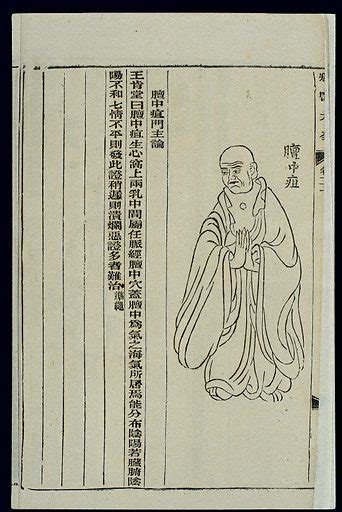 瘍醫大全
膻中疽
膻中疽門主論
王肯堂曰膻中疽生心窩上兩乳中間屬任脈經膻中穴蓋膻中爲氣之海氣所居焉能分布陰陽若臟腑陰
陽不和七情不平則發此證稍遲則潰爛惡證多者難治準繩